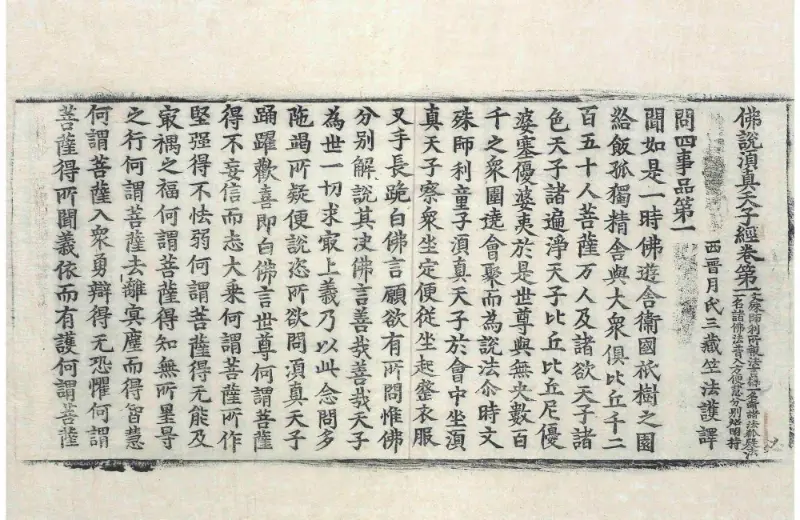 佛說湏真天子經卷第一
一名諸佛法普入方便慧分別炤明持
西晉月氏三藏竺法護譯
問四事品第一
聞如是一時佛遊舍衛國祇樹之園
給飯孤獨精舍與大衆俱比丘千二
百五十人菩薩万人及諸欲天子諸
色天子諸遍淨天子比丘比丘尼優
婆塞優婆夷於是世尊與無央數百
千之衆圍遶會聚而為說法尒時文
殊師利童子湏真天子於會中坐湏
真天子察衆坐定便從坐起整衣服
叉手長跪白佛言願欲有所問惟佛
分別解說其决佛言善哉善哉天子
為世一切求㝡上義乃以此念問多
陁竭所疑便說恣所欲問湏真天子
踊躍歡喜即白佛言世尊何謂菩薩
得不妄信而志大乘何謂菩薩所作
堅强得不怯弱何謂菩薩得无能及
㝡禍之福何謂菩薩得知無所罣导
之行何謂菩薩去離冥塵而得智慧
何謂菩薩入衆勇辯得无恐懼何謂
菩薩得所聞義依而有護何謂菩薩